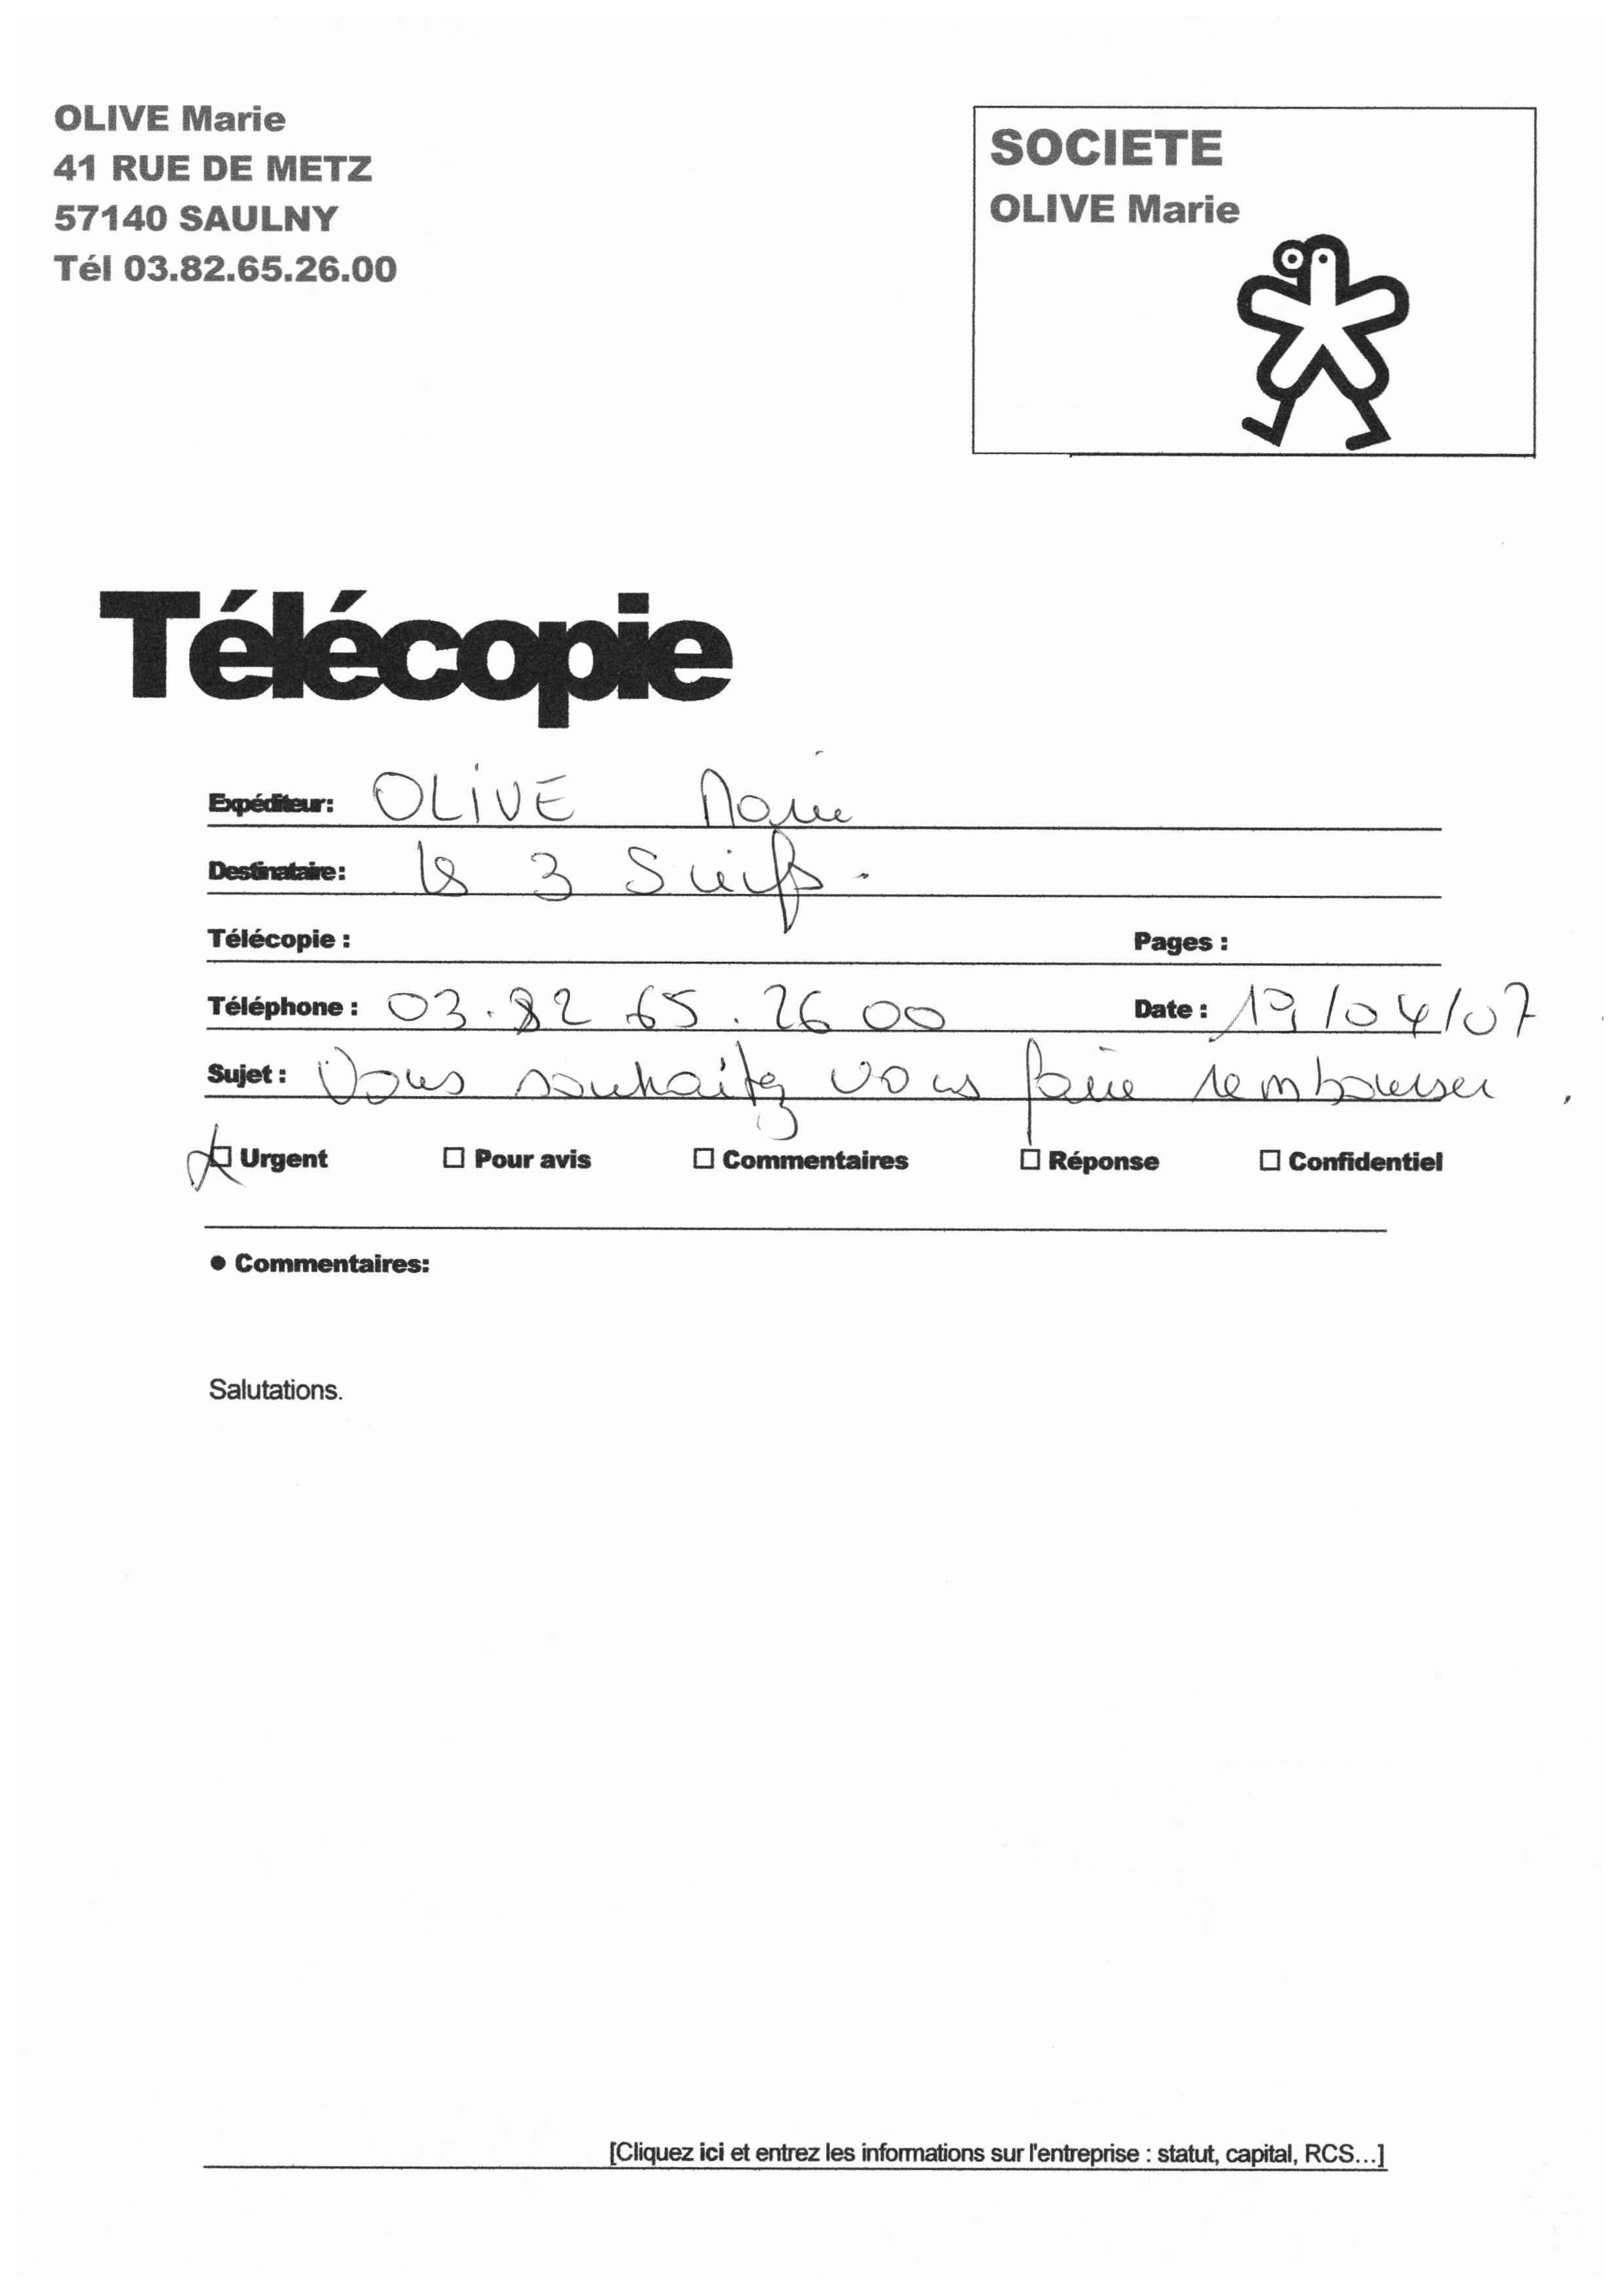 OLIVE Marie
41 RUE DE METZ
57140 SAULNY
Tél 03.82.65.26.00
SOCIETE
OLIVE Marie
Télécopie
Expéditeur: OLIVE Marie
Destinataire: les 3 Suisses.
Télécopie :
Pages :
Téléphone : 03.82 65. 26 00
Date : 19/04/07
Sujet : Vous souhaitez vous faire rembourser.
Urgent
Pour avis
Commentaires
Réponse
Confidentiel
● Commentaires:
Salutations.
[Cliquez ici et entrez les informations sur l'entreprise : statut, capital, RCS...]